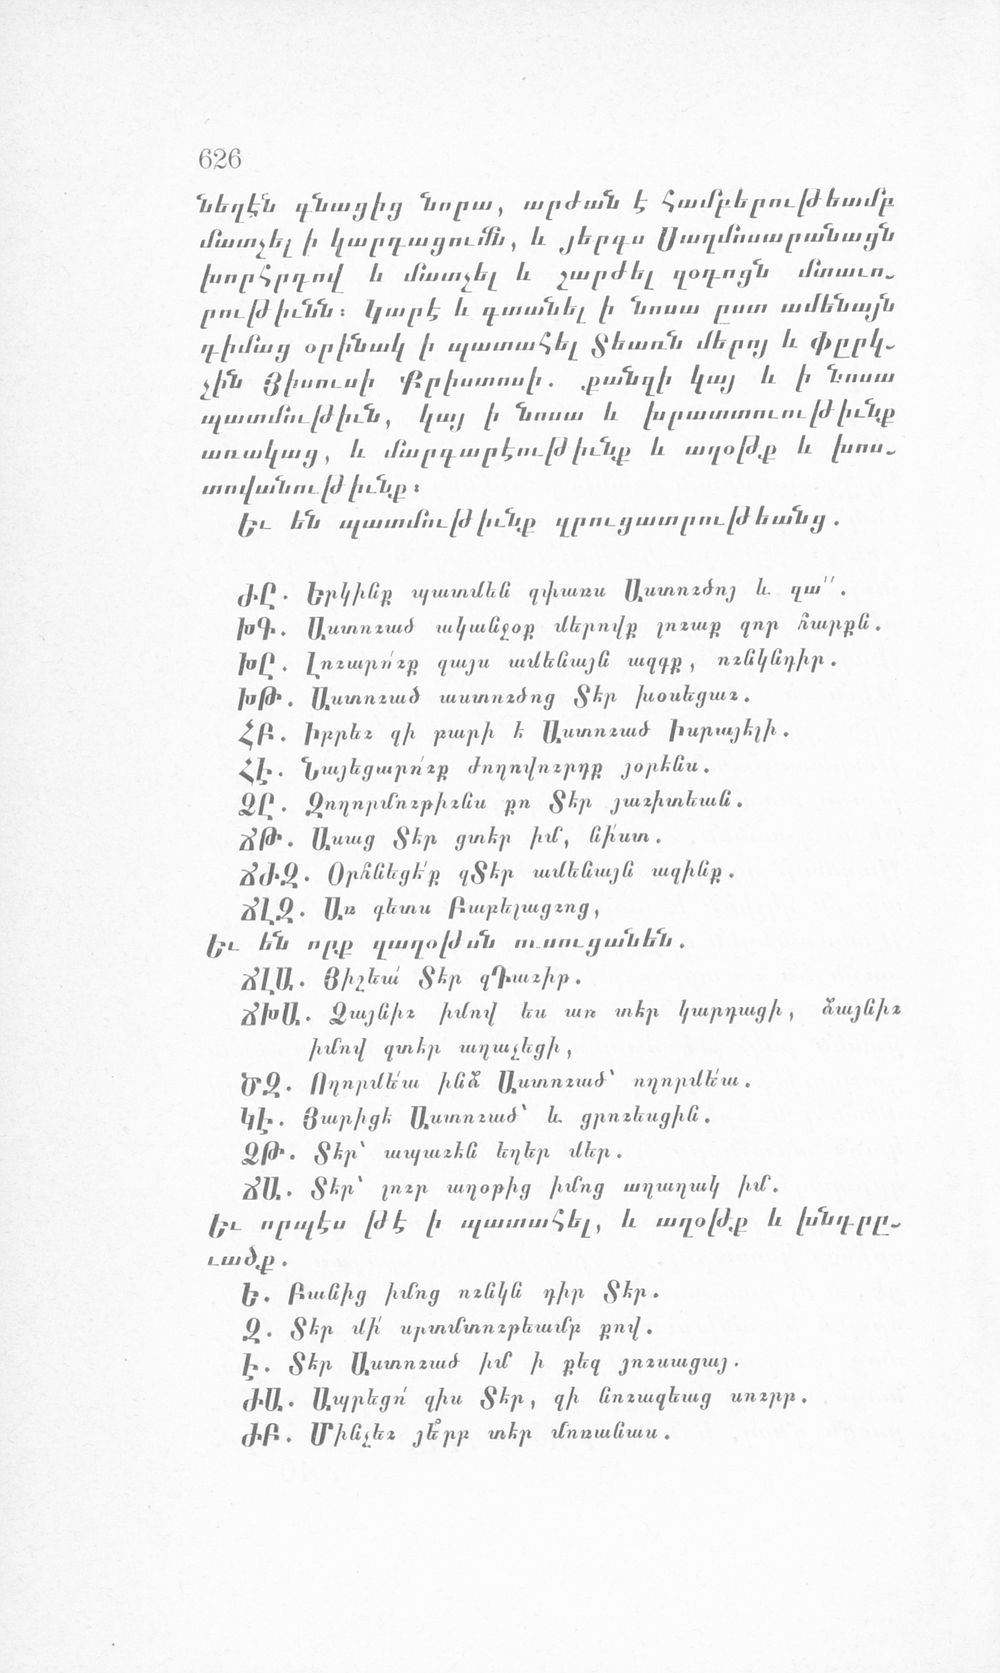 626
նեղէն գնացից նորա, արժան է համբերութեամբ
մատչել ի կարդացումն, և յերգս Սաղմոսարանացն
խորհրդով և մատչել և շարժել զօդոցն մտաւո֊
րութիւնն։ Կարէ և գտանել ի նոսա ըստ ամենայն
դիմաց օրինակ ի պատահել Տեառն մերոյ և Փըրկ֊
չին Յիսուսի Քրիստոսի. քանզի կայ և ի նոսա
պատմութիւն, կայ ի նոսա և խրատտուութիւնք
առակաց, և մարգարէութիւնք և աղօթք և խոս֊
տովանութիւնք։
Եւ են պատմութիւնք զրուցատրութեանց.
ԺԸ. Երկինք պատմեն զփառս Աստուծոյ և զա՛՛.
ԽԳ. Աստուած ականջօք մերովք լուաք զոր հարքն.
ԽԸ. Լուարո՛ւք զայս ամենայն ազգք, ունկնդիր.
ԽԹ. Աստուած աստուծոց Տէր խօսեցաւ.
ՀԲ. Իբրեւ զի բարի է Աստուած Իսրայելի.
ՀԷ. Նայեցարո՛ւք ժողովուրդք յօրէնս.
ՁԸ. Զողորմութիւնս քո Տէր յաւիտեան.
ՃԹ. Ասաց Տէր ցտէր իմ, նի՛ստ.
ՃԺԶ. Օրհնեցէ՛ք զՏէր ամենայն ազինք.
ՃԼԶ. Առ գետս Բաբելացւոց,
Եւ են որք զաղօթսն ուսուցանեն.
ՃԼԱ. Յիշեա՛ Տէր զԴաւիթ.
ՃԽԱ. Ձայնիւ իմով ես առ տէր կարդացի, ձայնիւ
իմով զտէր աղաչեցի,
ԾԶ. Ողորմե՛ա ինձ Աստուած՝ ողորմե՛ա.
ԿԷ. Յարիցէ Աստուած՝ և ցրուեսցին.
ՁԹ. Տէր՝ ապաւէն եղեր մեր.
ՃԱ. Տէր՝ լուր աղօթից իմոց աղաղակ իմ.
Եւ որպէս թէ ի պատահել, և աղօթք և խնդրը֊
ւածք.
Ե. Բանից իմոց ունկն դիր Տէր.
Զ. Տէր մի՛ սրտմտութեամբ քով.
Է. Տէր Աստուած իմ ի քեզ յուսացայ.
ԺԱ. Ապրեցո՛ զիս Տէր, զի նուազեաց սուրբ.
ԺԲ. Մինչեւ յե՞րբ տէր մոռանաս.